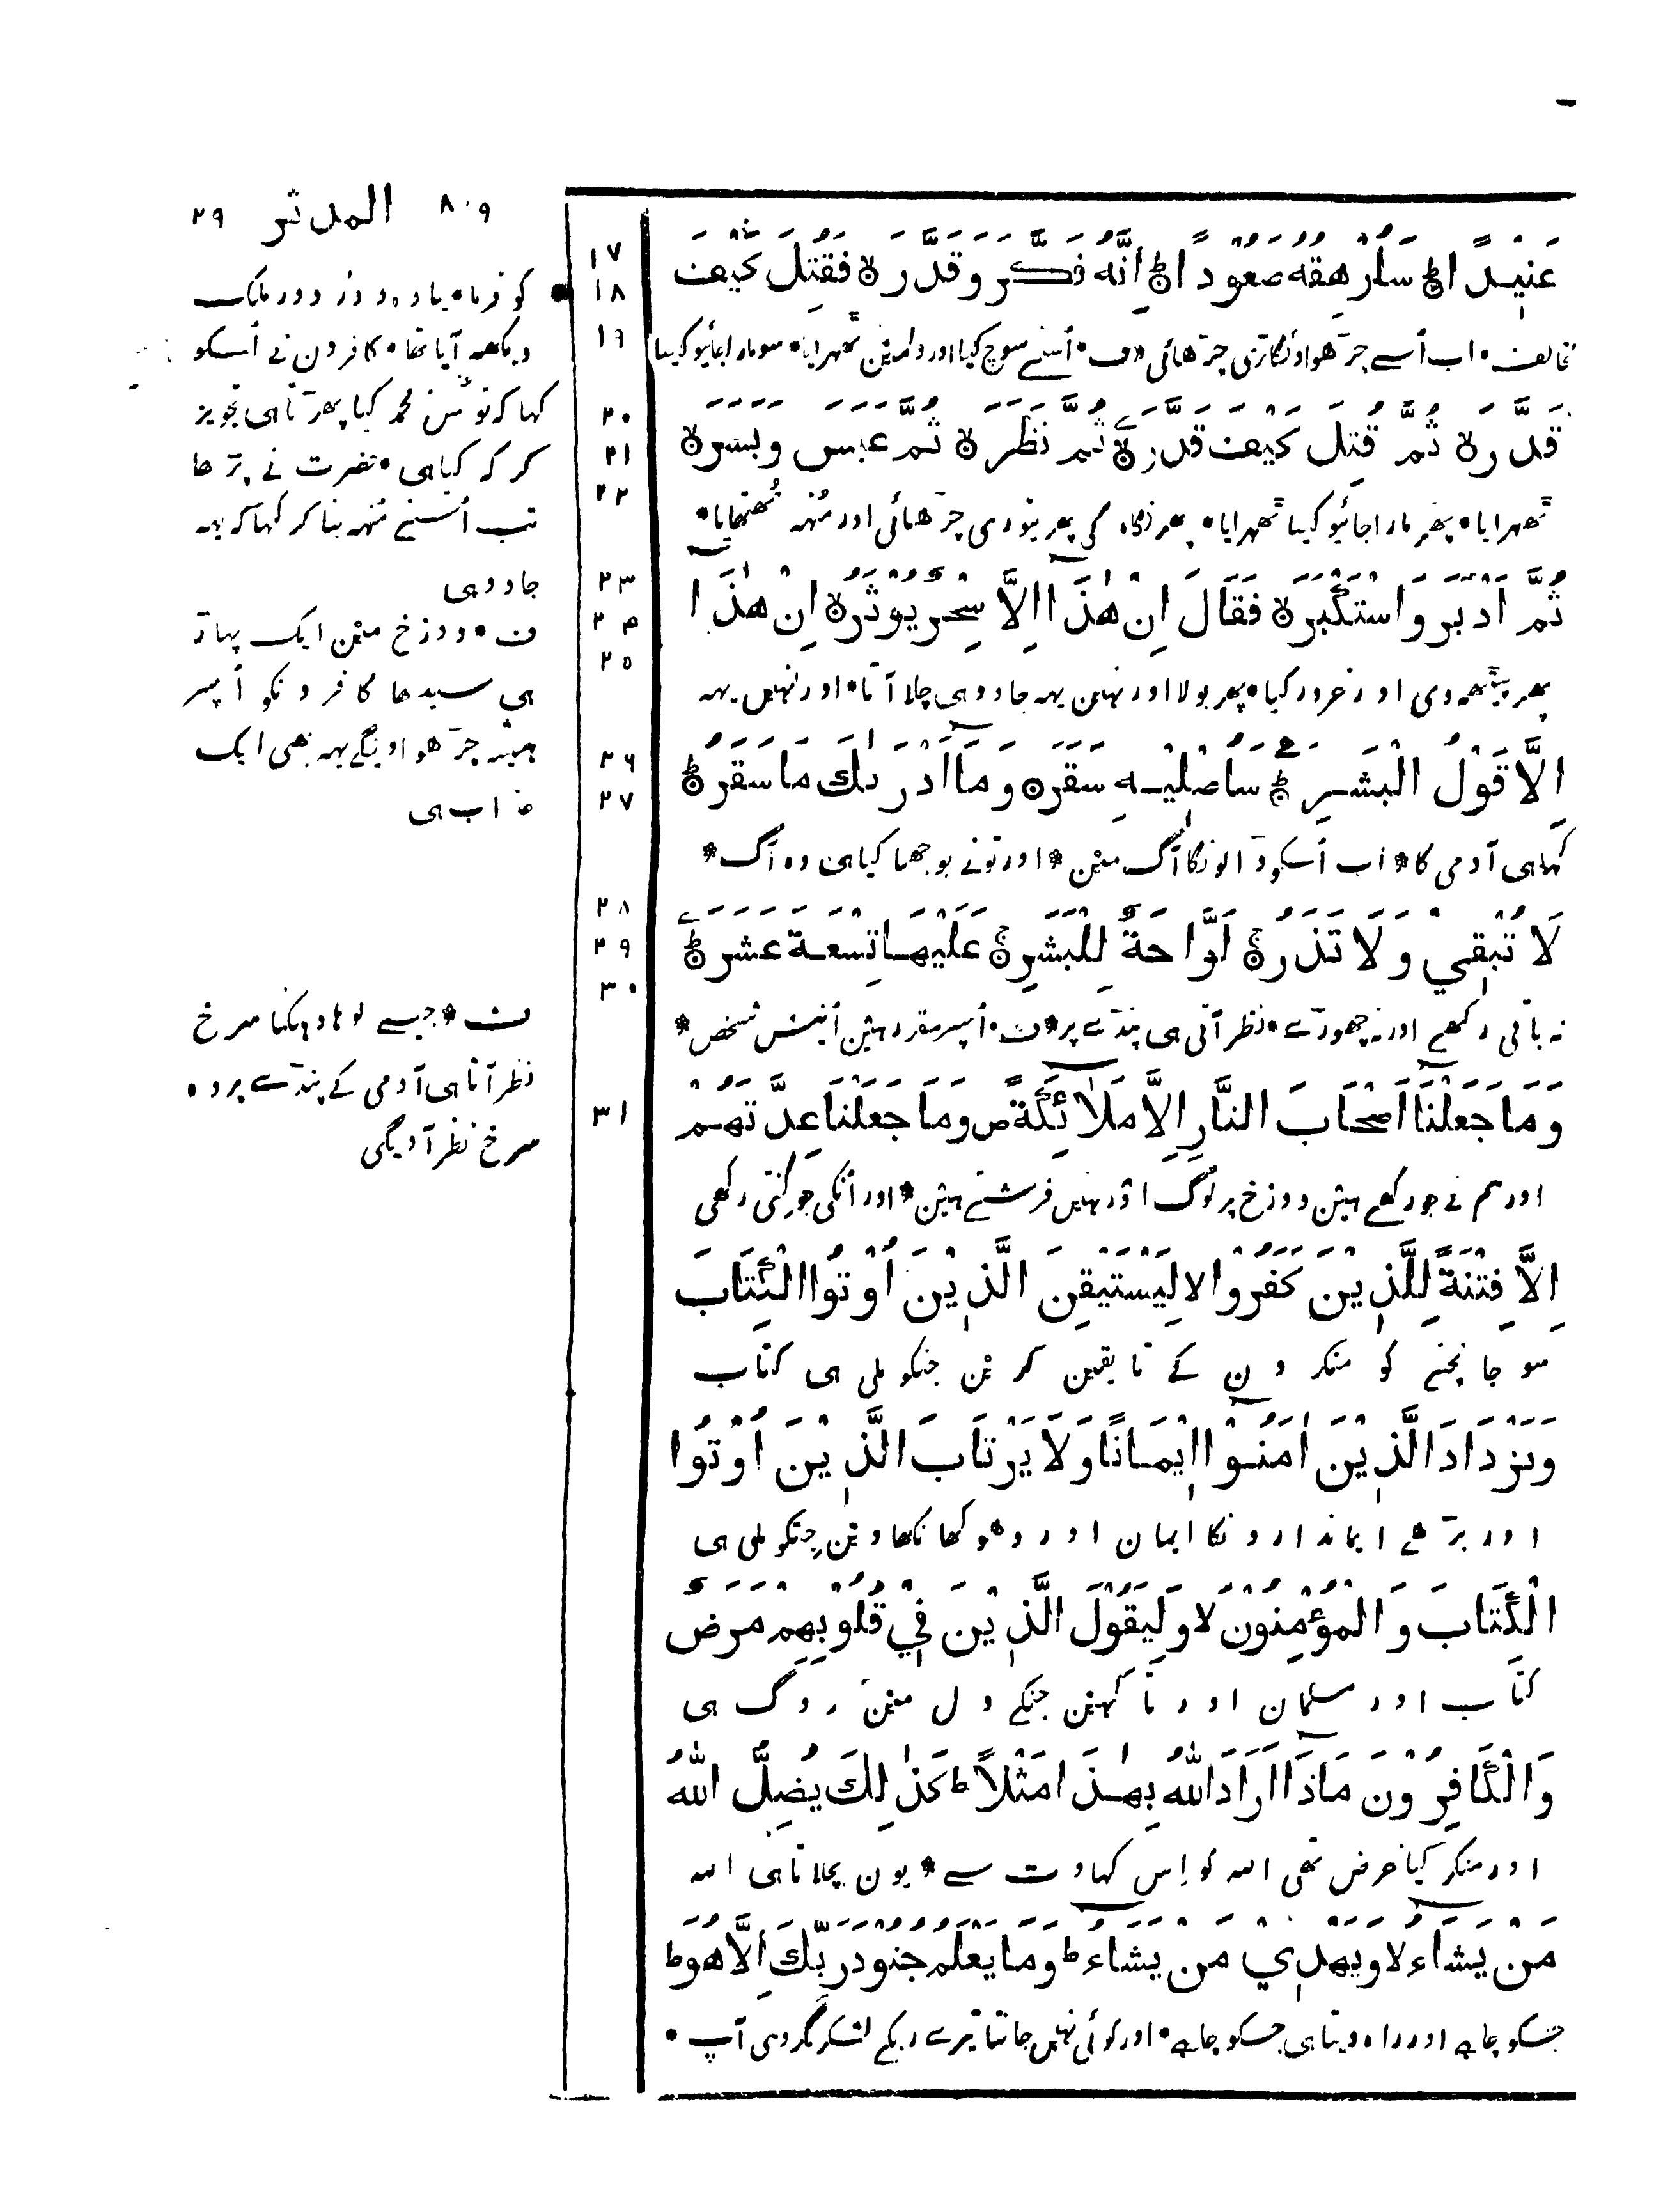 ۸۰۹ المدثر ۲۹
عَنِيْدًا ؕ سَاُرْهِقُهٗ صَعُوْدًا ؕ اِنَّهٗ فَكَّرَ وَقَدَّرَ ۙ فَقُتِلَ كَيْفَ
مخالف • اب اُسے چڑھواونگا بڑی چڑھائی ف • اُسنے سوچ کیا اور دلمین ٹھہرایا • سو مارا جائیو کیسا
قَدَّرَ ۙ ثُمَّ قُتِلَ كَيْفَ قَدَّرَ ۙ ثُمَّ نَظَرَ ۙ ثُمَّ عَبَسَ وَبَسَرَ ۙ
ٹھہرایا • پھر مارا جائیو کیسا ٹھہرایا • پھر نگاہ کی پھر تیوری چڑھائی اور مُنہہ تُھتھایا •
ثُمَّ اَدْبَرَ وَاسْتَكْبَرَ ۙ فَقَالَ اِنْ هٰذَا اِلَّا سِحْرٌ يُوْثَرُ ۙ اِنْ هٰذَا
پھر پیٹھہ دی اور غرور کیا • پھر بولا اور نہین یہہ جادو ہی چلا آتا • اور نہین یہہ
اِلَّا قَوْلُ الْبَشَرِ ؕ سَاُصْلِيْهِ سَقَرَ ۝ وَمَا اَدْرٰىكَ مَا سَقَرُ ؕ
کہا ہی آدمی کا * اب اُسکو ڈالونگا آگ مین * اور تونے بوجھا کیا ہی وہ آگ *
لَا تُبْقِيْ وَلَا تَذَرُ ۚ لَوَّاحَةٌ لِّلْبَشَرِ ۚ عَلَيْهَا تِسْعَةَ عَشَرَ ؕ
نہ باقی رکھے اور نہ چھوڑے • نظر آتی ہی پنڈے پر * ف • اُسپر مقرر ہین اُنیس شخص *
وَمَا جَعَلْنَا اَصْحَابَ النَّارِ اِلَّا مَلٰائِكَةً ص وَمَا جَعَلْنَا عِدَّتَهُمْ
اور ہم نے جو رکھے ہین دوزخ پر لوگ اور نہین فرشتے ہین * اور اُنکی جو گنتی رکھی
اِلَّا فِتْنَةً لِّلَّذِيْنَ كَفَرُوْا لا لِيَسْتَيْقِنَ الَّذِيْنَ اُوْتُوا الْكِتَابَ
سو جانچنے کو منکرون کے تا یقین کرین جنکو ملی ہی کتاب
وَيَزْدَادَ الَّذِيْنَ اٰمَنُوْا اِيْمَانًا وَلَا يَرْتَابَ الَّذِيْنَ اُوْتُوا
اور بڑھے ایماندارونکا ایمان اور دھوکھا نکھاوین جنکو ملی ہی
الْكِتَابَ وَالْمُؤْمِنُوْنَ لا وَلِيَقُوْلَ الَّذِيْنَ فِيْ قُلُوْبِهِمْ مَرَضٌ
کتاب اور مسلمان اور تا کہین جنکے دل مین روگ ہی
وَالْكَافِرُوْنَ مَاذَا اَرَادَ اللّٰهُ بِهٰذَا مَثَلًا ط كَذٰلِكَ يُضِلُّ اللّٰهُ
اور منکر کیا غرض تھی اللہ کو اِس کہاوت سے * یون بچلاتا ہی اللہ
مَنْ يَّشَاءُ لا وَيَهْدِيْ مَنْ يَّشَاءُ ط وَمَا يَعْلَمُ جُنُوْدَ رَبِّكَ اِلَّا هُوَ ط
جسکو چاہے اور راہ دیتا ہی جسکو چاہے • اور کوئی نہین جانتا تیرے ربکے لشکر مگر وہی آپ •
۱۷
۱۸
۱۹
۲۰
۲۱
۲۲
۲۳
۲۴
۲۵
۲۶
۲۷
۲۸
۲۹
۳۰
۳۱
دیکھہ آیا تھا • کافرون نے اُسکو
کہا کہ تو سُن محمد کیا پڑھتا ہی تجویز
کر کہ کیا ہی • حضرت نے پڑھا
تب اُسنے مُنہہ بنا کر کہا کہ یہہ
جادو ہی
ف • دوزخ مین ایک پہاڑ
ہی سیدھا کافرونکو اُسپر
ہمیشہ چڑھواوینگے یہہ بھی ایک
عذاب ہی
ف * جیسے لوہا دہکتا سرخ
نظر آتا ہی آدمی کے پنڈے پر وہ
سرخ نظر آویگی